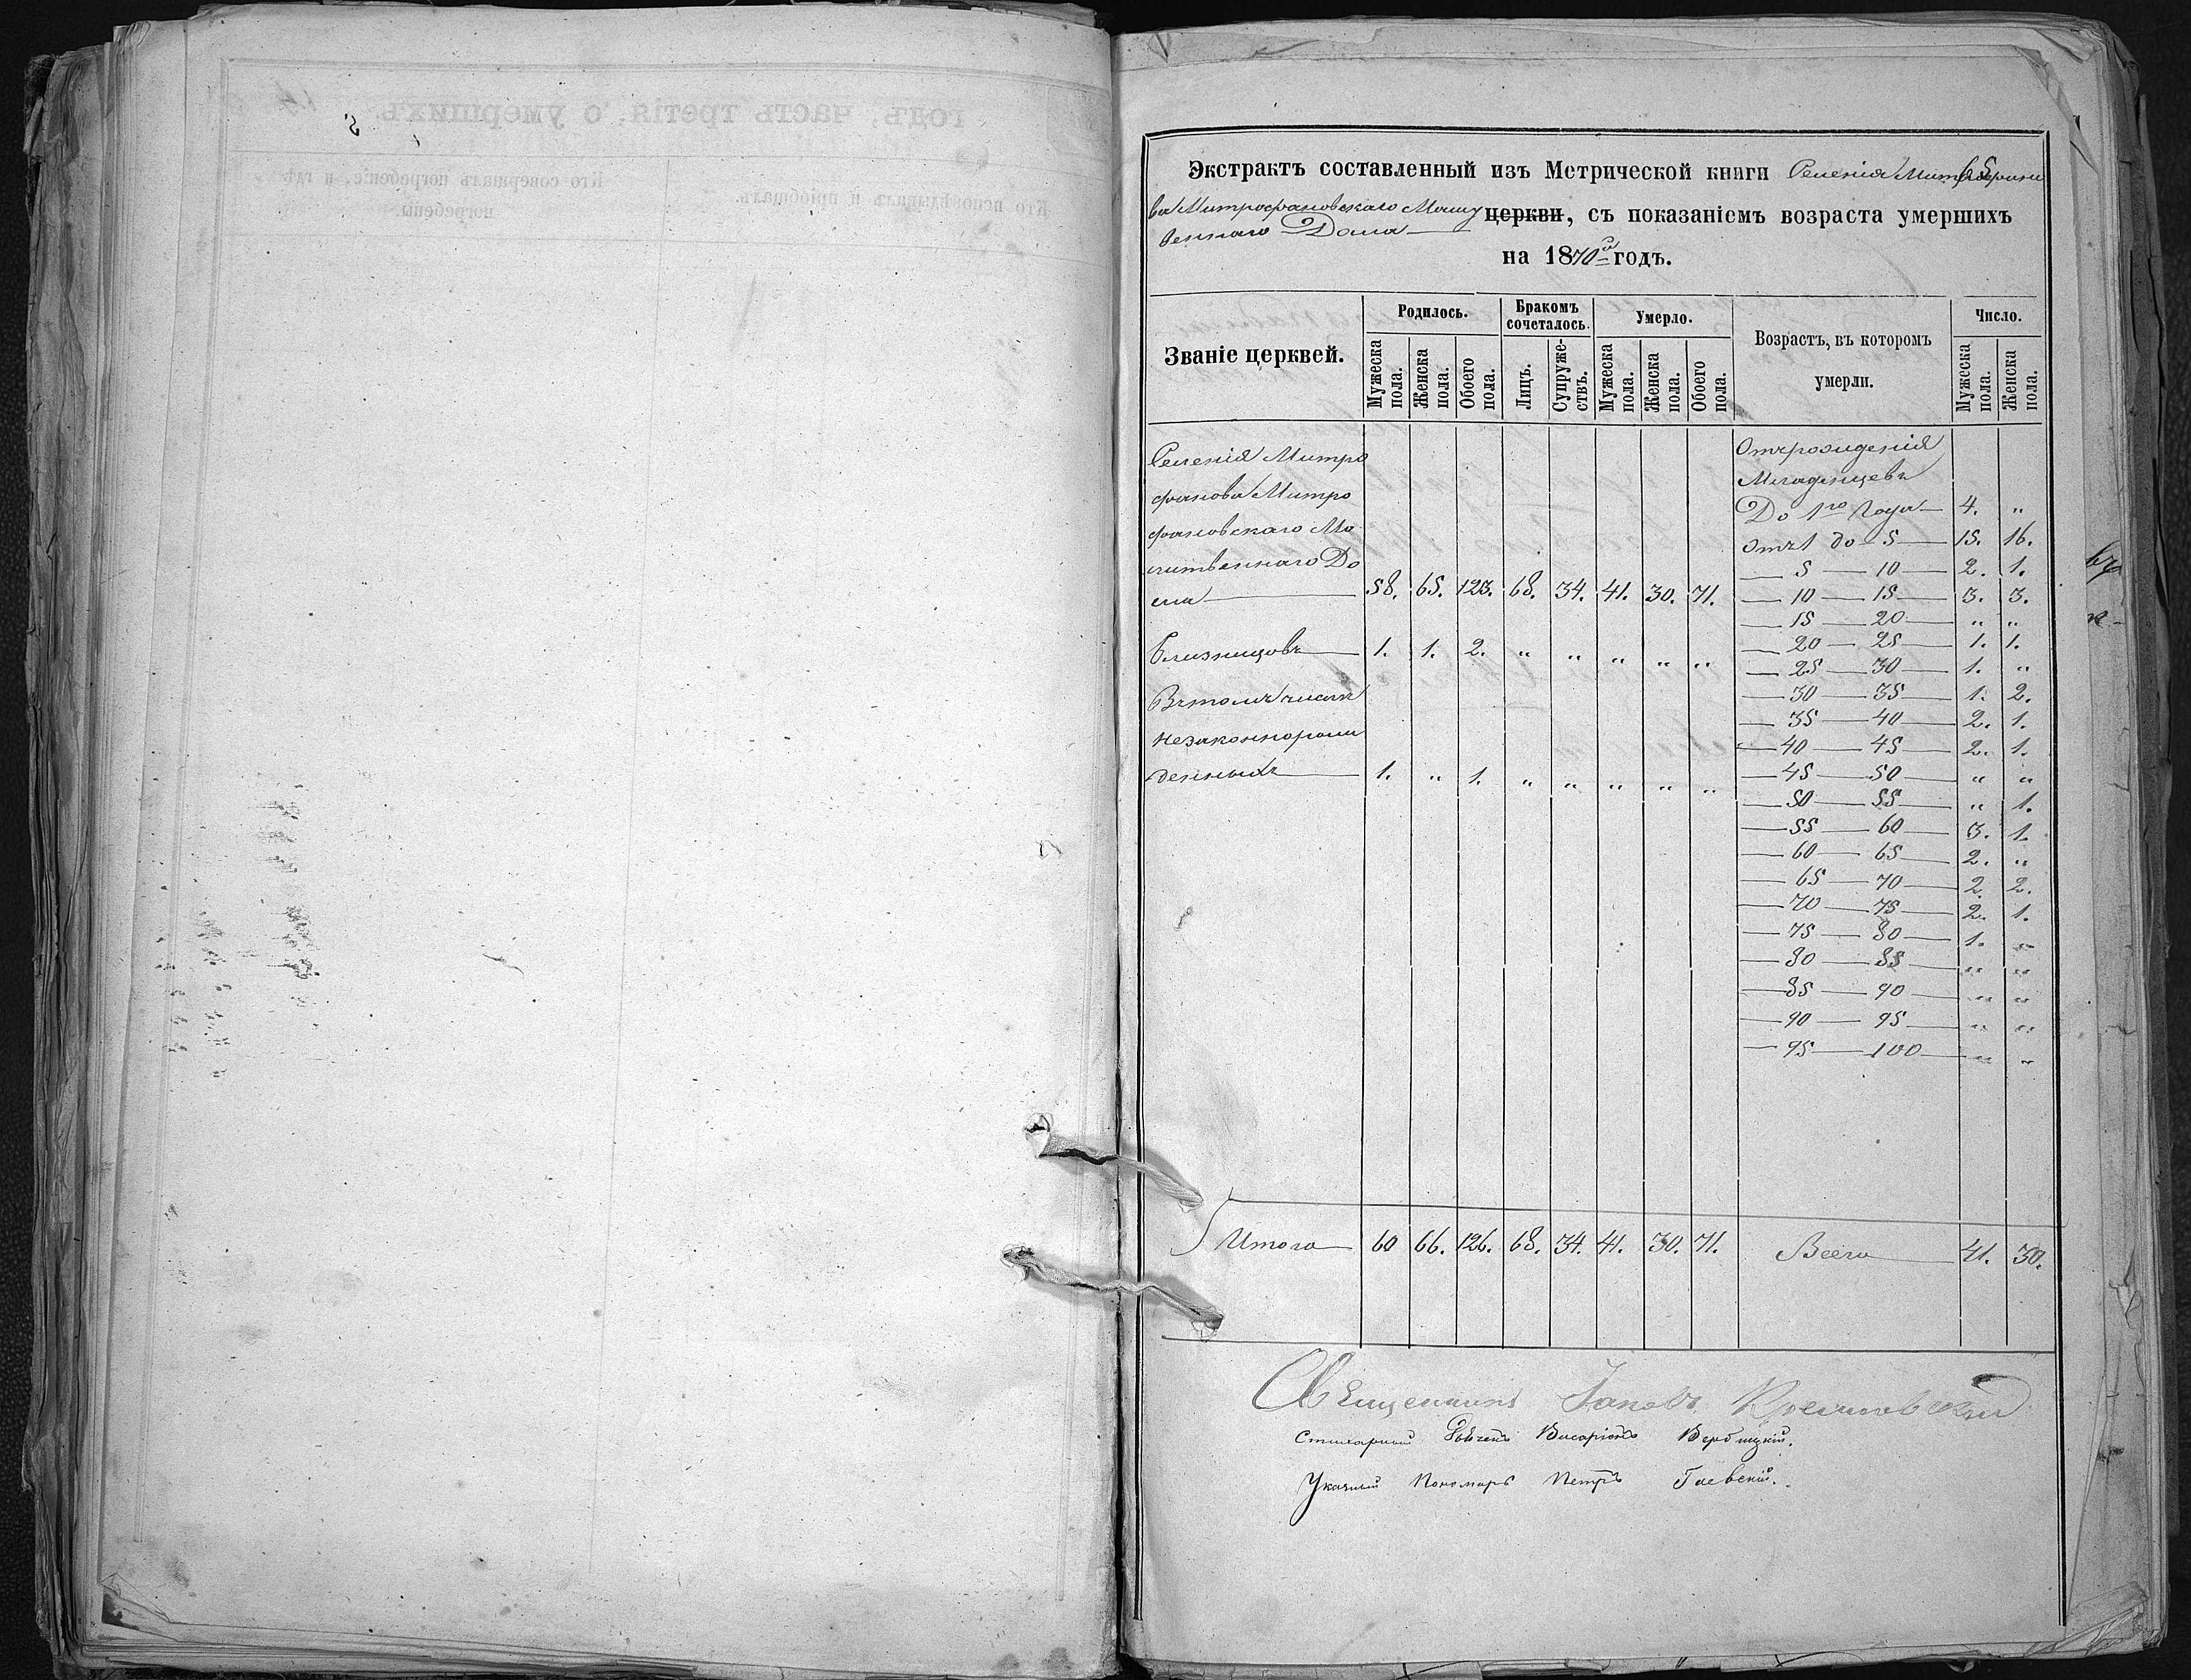 Экстрактъ составленный изъ Метрической книги Селенія Митрофано
ва Митрофановскаго Молит
веннаго Дома церкви, съ показаніемъ возраста умершихъ
на 1870й годъ.
Званіе церквей. Родилось. Бракомъ сочеталось. Умерло. Возрастъ, въ которомъ умерли. Число.
Мужеска пола. Женска пола. Обоего пола. Лицъ. Супружествъ. Мужеска пола. Женска пола. Обоего пола. Мужеска пола. Женска пола.
Селенія Митро
фанова Митро
фановскаго Мо
литвеннаго До
ма 58. 65. 123. 68. 34. 41. 30. 71.
Близнецовъ 1. 1. 2. " " " " "
Въ томъ числѣ
незаконнорож
денныхъ 1. " 1. " " " " "
Отъ рожденія
Младенцевъ
До 1го года 4. "
отъ 1 до 5 15. 16.
5 — 10 2. 1.
10 — 15 3. 3.
15 — 20 " "
20 — 25 1. 1.
25 — 30 1. "
30 — 35 1. 2.
35 — 40 2. 1.
40 — 45 2. 1.
45 — 50 " "
50 — 55 " 1.
55 — 60 3. 1.
60 — 65 2. "
65 — 70 2. 2.
70 — 75 2. 1.
75 — 80 1. "
80 — 85 " "
85 — 90 " "
90 — 95 " "
95 — 100 " "
Итого 60 66. 126. 68. 34. 41. 30. 71. Всего 41. 30.
Священникъ Іаковъ
Стихарный Дьячекъ Висаріонъ Вербицкій.
Указный Пономарь Петръ Гаевскій.
годъ, часть третія, о умершихъ.
Кто исповѣдывалъ и пріобщалъ.
Кто совершалъ погребеніе, и гдѣ
погребены.